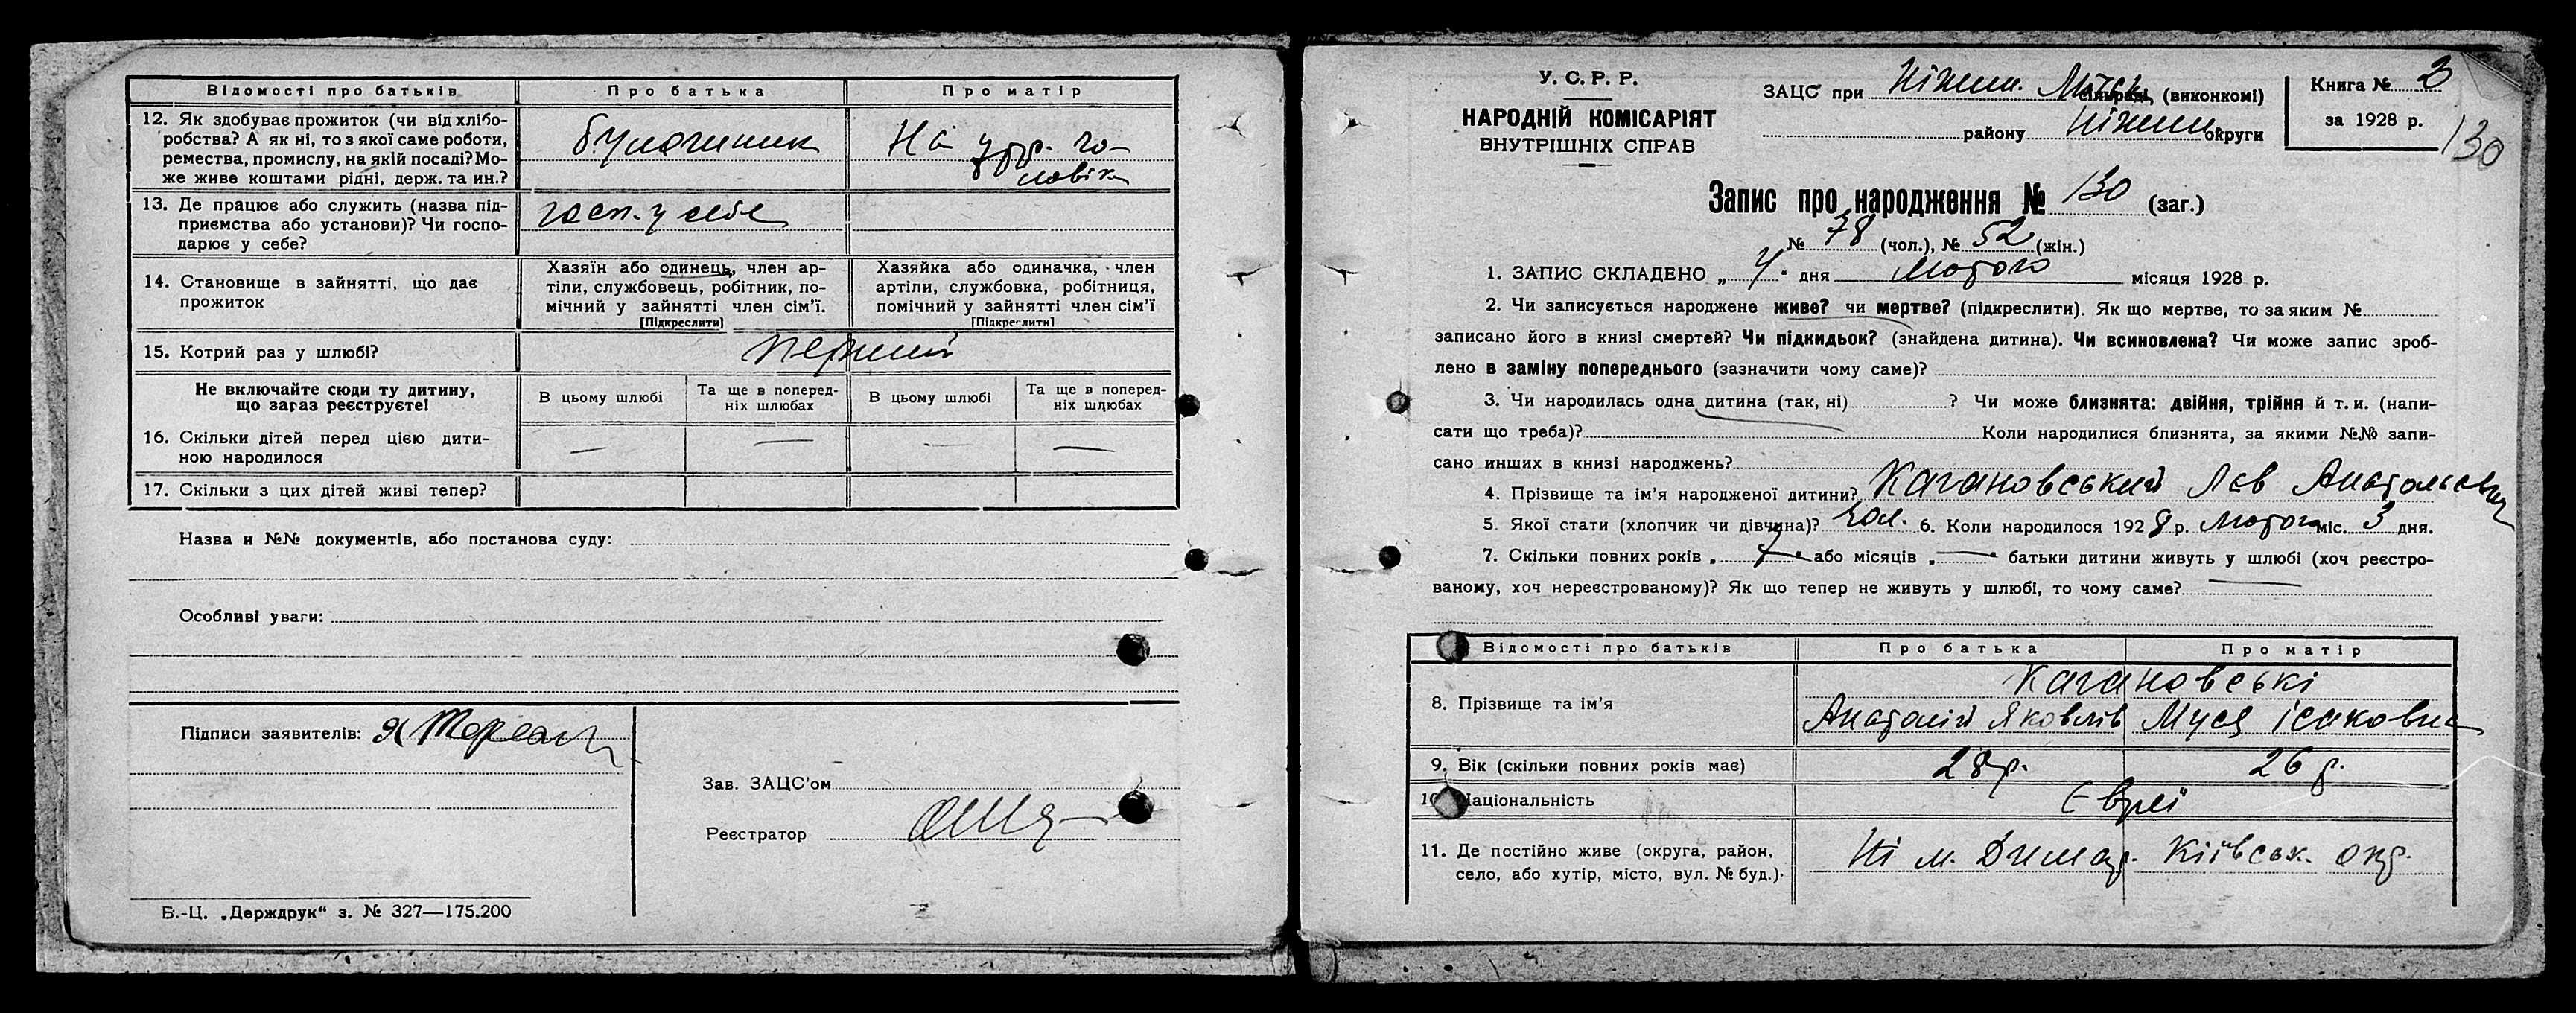 Відомості про батьків Про батька Про матір
12. Як здобуває прожиток (чи від хлібо-
робства? А як ні, то з якої саме роботи,
ремества, промислу, на якій посаді? Мо-
же живе коштами рідні, держ. та ин.?
булочник
На утр. чо-
ловіка
13. Де працює або служить (назва під-
приємства або установи)? Чи госпо-
дарює у себе?
госп. у себе
14. Становище в зайнятті, що дає
прожиток
Хазяїн або одинець, член ар-
тілі, службовець, робітник, по-
мічний у зайнятті член сім'ї.
[Підкреслити]
Хазяйка або одиначка, член
артіли, службовка, робітниця,
помічний у зайнятті член сім'ї
[Підкреслити]
15. Котрий раз у шлюбі? перший
Не включайте сюди ту дитину,
що зараз реєструєте!
В цьому шлюбі
Та ще в поперед-
ніх шлюбах
В цьому шлюбі
Та ще в поперед-
ніх шлюбах
16. Скільки дітей перед цією дити-
ною народилося
— — — —
17. Скільки з цих дітей живі тепер?
Назва и №№ документів, або постанова суду:
Особливі уваги:
Підписи заявителів:
Зав. ЗАЦС'ом
Реєстратор
Б.-Ц. „Держдрук“ з. № 327—175.200
У. С. Р. Р.
НАРОДНІЙ КОМІСАРІЯТ
ВНУТРІШНІХ СПРАВ
ЗАЦС при Ніжин. Міськ сільраді, (виконкомі)
району Ніжин. округи
Книга № 2
за 1928 р.
130
Запис про народження № 130 (заг.)
№ 78 (чол.), № 52 (жін.)
1. ЗАПИС СКЛАДЕНО „ 4 “ дня Лютого місяця 1928 р.
2. Чи записується народжене живе? чи мертве? (підкреслити). Як що мертве, то за яким №
записано його в книзі смертей? Чи підкидьок? (знайдена дитина). Чи всиновлена? Чи може запис зроб-
лено в заміну попереднього (зазначити чому саме)?
3. Чи народилась одна дитина (так, ні) ? Чи може близнята: двійня, трійня й т. и. (напи-
сати що треба)? Коли народилися близнята, за якими №№ запи-
сано инших в книзі народжень?
4. Прізвище та ім'я народженої дитини? Кагановський Лев Анатольевич
5. Якої стати (хлопчик чи дівчина)? чол. 6. Коли народилося 1928 р. Лютого міс. 3 дня.
7. Скільки повних років „ “ або місяців „ — “ батьки дитини живуть у шлюбі (хоч реєстро-
ваному, хоч нереєстрованому)? Як що тепер не живуть у шлюбі, то чому саме? —
Відомості про батьків Про батька Про матір
8. Прізвище та ім'я
Кагановські
Анатолій Яковлів Муся Ісаковна
9. Вік (скільки повних років має) 28 р. 26 р.
10. Національність Євреї
11. Де постійно живе (округа, район,
село, або хутір, місто, вул. № буд.).
м. Димер. Київськ. окр.